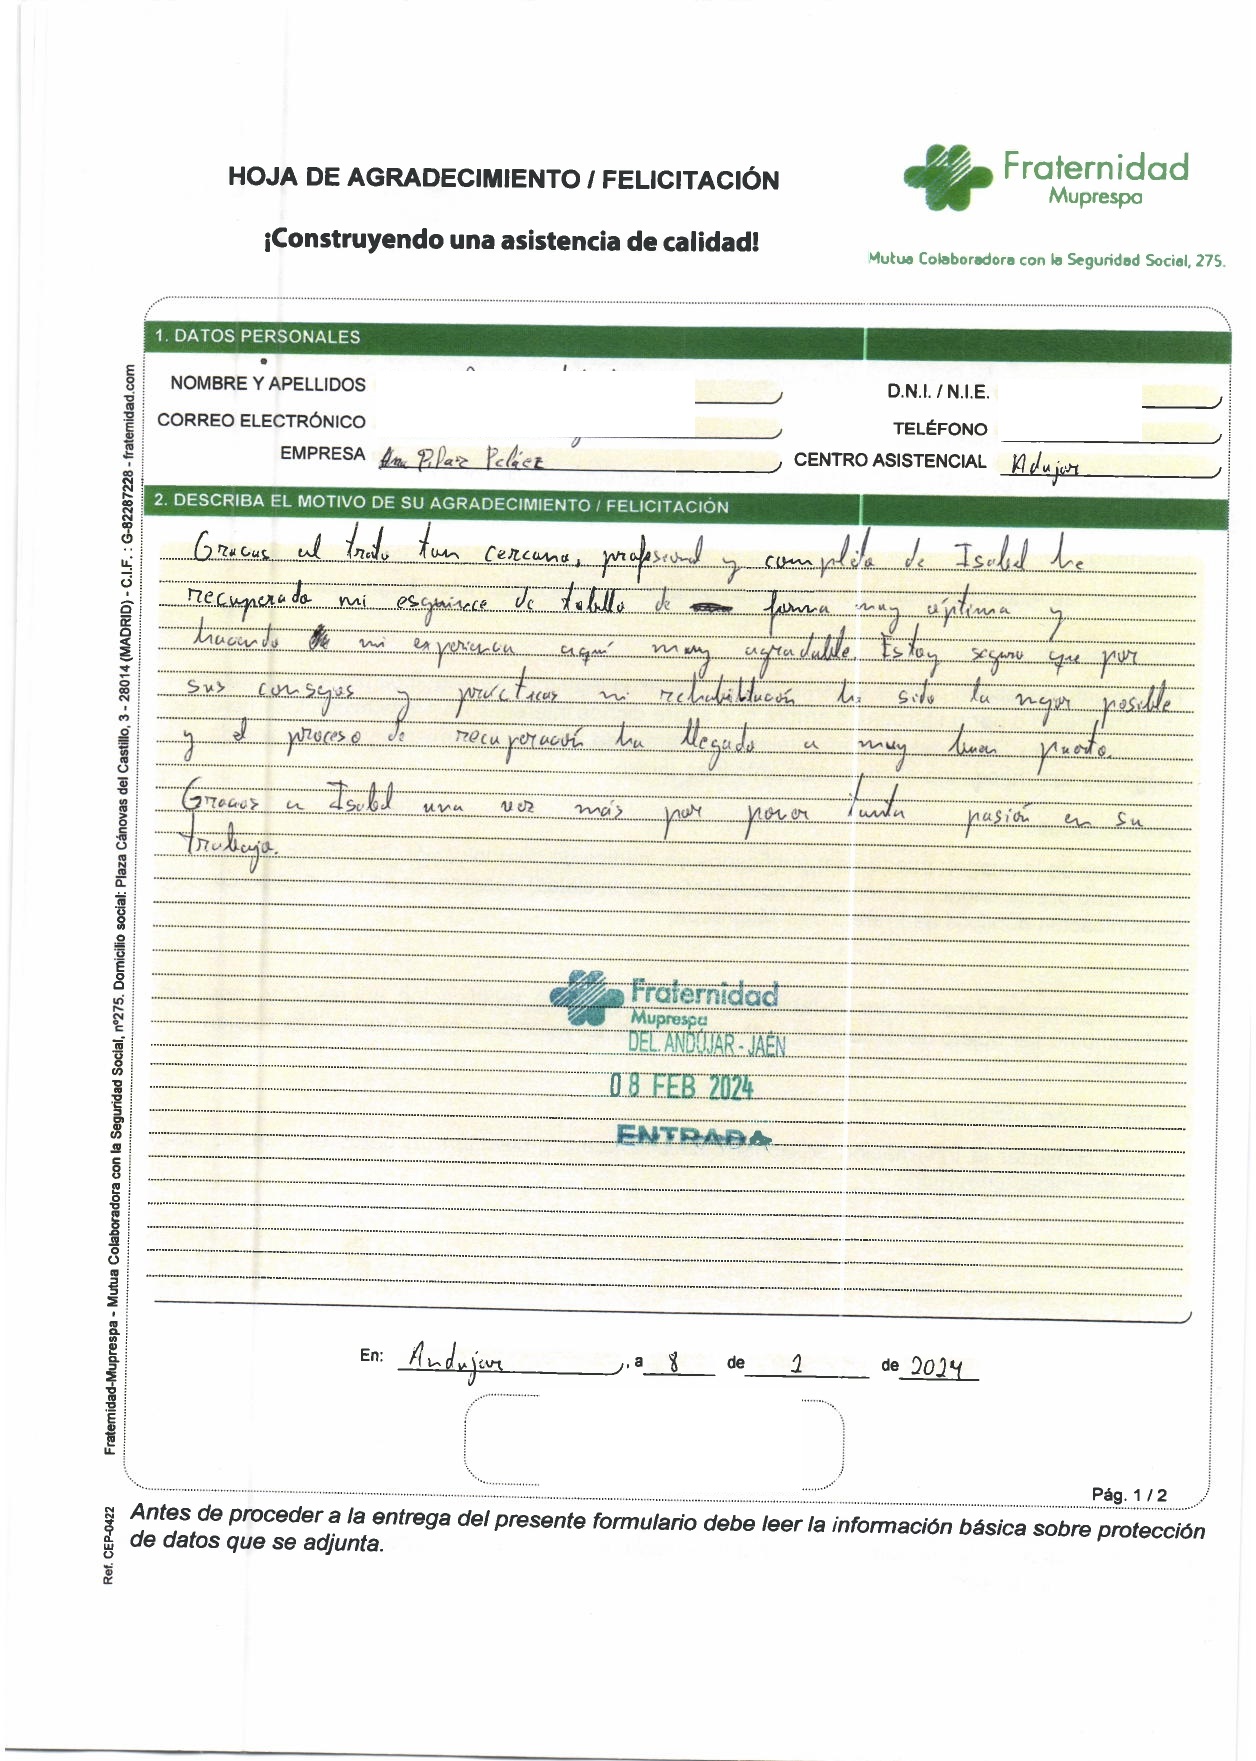 HOJA DE AGRADECIMIENTO / FELICITACIÓN
¡Construyendo una asistencia de calidad!
Fraternidad
Muprespa
Mutua Colaboradora con la Seguridad Social, 275.
1. DATOS PERSONALES
NOMBRE Y APELLIDOS
D.N.I. / N.I.E.
CORREO ELECTRÓNICO
TELÉFONO
EMPRESA Ana Pilar Peláez
CENTRO ASISTENCIAL Adujar
2. DESCRIBA EL MOTIVO DE SU AGRADECIMIENTO / FELICITACIÓN
Gracias al trato tan cercano, profesional y completo de Isabel he
recuperado mi esguince de tobillo de forma muy óptima y
haciendo mi experiencia aquí muy agradable. Estoy seguro que por
sus consejos y prácticas mi rehabilitación ha sido la mejor posible
y el proceso de recuperación ha llegado a muy buen puerto.
Gracias a Isabel una vez más por poner tanta pasión en su
trabajo.
Fraternidad
Muprespa
DEL. ANDÚJAR - JAÉN
08 FEB 2024
ENTRADA
En: Andujar, a 8 de 2 de 2024
Pág. 1 / 2
Antes de proceder a la entrega del presente formulario debe leer la información básica sobre protección
de datos que se adjunta.
Fraternidad-Muprespa - Mutua Colaboradora con la Seguridad Social, nº275. Domicilio social: Plaza Cánovas del Castillo, 3 - 28014 (MADRID) - C.I.F. : G-82287228 - fraternidad.com
Ref. CEP-0422